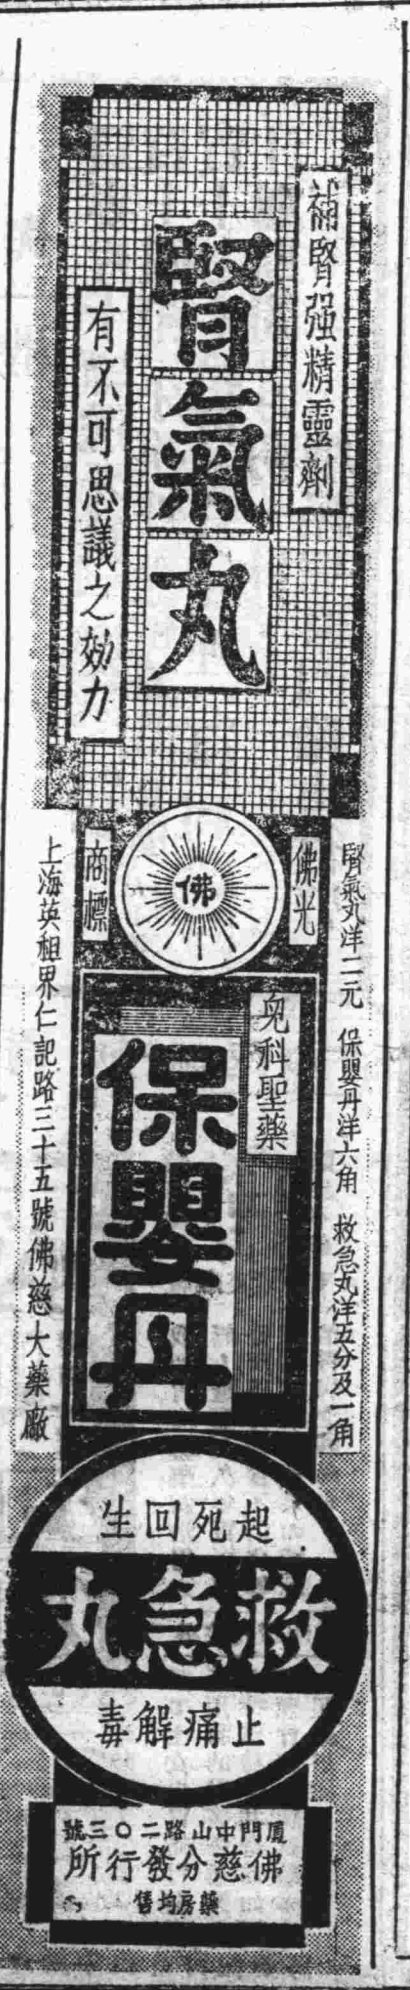 補腎强精靈劑
腎氣丸
有不可思議之効力
佛光
佛
商標
腎氣丸洋二元 保嬰丹洋六角 救急丸洋五分及一角
兒科聖藥
保嬰丹
上海英租界仁記路三十五號佛慈大藥廠
起死回生
救急丸
止痛解毒
厦門中山路二〇三號
佛慈分發行所
藥房均售